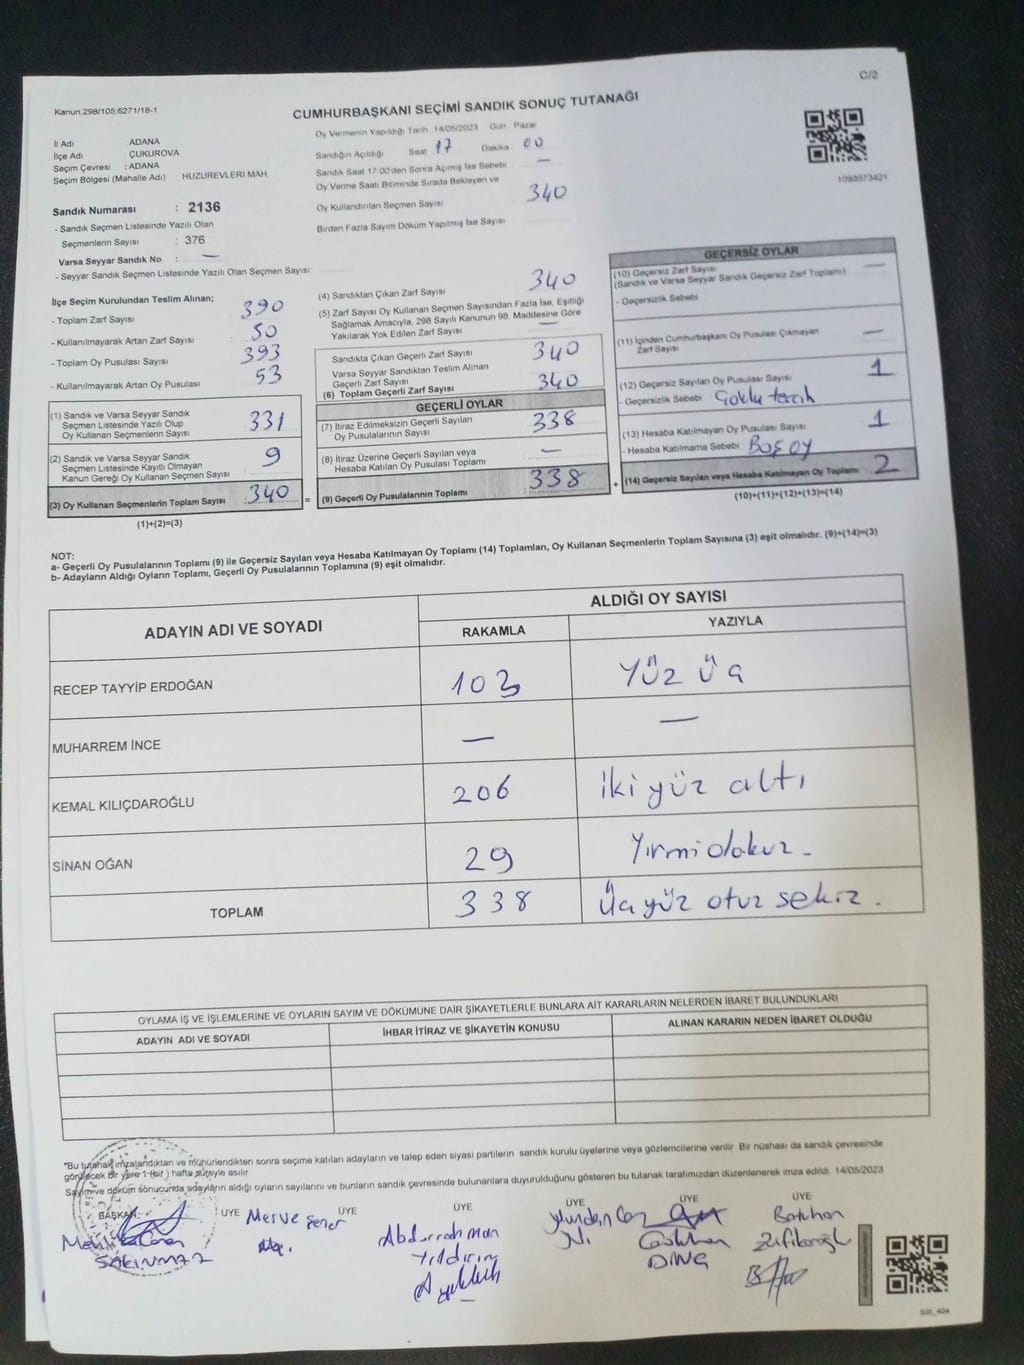 C/2
Kanun;298/105;6271/18-1
CUMHURBAŞKANI SEÇİMİ SANDIK SONUÇ TUTANAĞI
İl Adı ADANA
İlçe Adı ÇUKUROVA
Seçim Çevresi : ADANA
Seçim Bölgesi (Mahalle Adı) HUZUREVLERİ MAH.
Oy Vermenin Yapıldığı Tarih 14/05/2023 Gün Pazar
Sandığın Açıldığı Saat 17 Dakika 00
Sandık Saat 17:00'den Sonra Açımış İse Sebebi —
Oy Verme Saati Bitiminde Sırada Bekleyen ve
Oy Kullandırılan Seçmen Sayısı 340
Birden Fazla Sayım Döküm Yapılmış İse Sayısı
1093573421
Sandık Numarası : 2136
- Sandık Seçmen Listesinde Yazılı Olan
Seçmenlerin Sayısı : 376
Varsa Seyyar Sandık No : —
- Seyyar Sandık Seçmen Listesinde Yazılı Olan Seçmen Sayısı:
İlçe Seçim Kurulundan Teslim Alınan;
- Toplam Zarf Sayısı 390
- Kullanılmayarak Artan Zarf Sayısı 50
- Toplam Oy Pusulası Sayısı 393
- Kullanılmayarak Artan Oy Pusulası 53
(1) Sandık ve Varsa Seyyar Sandık
Seçmen Listesinde Yazılı Olup
Oy Kullanan Seçmenlerin Sayısı 331
(2) Sandık ve Varsa Seyyar Sandık
Seçmen Listesinde Kayıtlı Olmayan
Kanun Gereği Oy Kullanan Seçmen Sayısı 9
(3) Oy Kullanan Seçmenlerin Toplam Sayısı 340 =
(1)+(2)=(3)
(4) Sandıktan Çıkan Zarf Sayısı 340
(5) Zarf Sayısı Oy Kullanan Seçmen Sayısından Fazla İse, Eşitliği
Sağlamak Amacıyla, 298 Sayılı Kanunun 98. Maddesine Göre
Yakılarak Yok Edilen Zarf Sayısı —
Sandıkta Çıkan Geçerli Zarf Sayısı 340
Varsa Seyyar Sandıktan Teslim Alınan
Geçerli Zarf Sayısı
(6) Toplam Geçerli Zarf Sayısı 340
GEÇERLİ OYLAR
(7) İtiraz Edilmeksizin Geçerli Sayılan
Oy Pusulalarının Sayısı 338
(8) İtiraz Üzerine Geçerli Sayılan veya
Hesaba Katılan Oy Pusulası Toplamı —
(9) Geçerli Oy Pusulalarının Toplamı 338 +
GEÇERSİZ OYLAR
(10) Geçersiz Zarf Sayısı
(Sandık ve Varsa Seyyar Sandık Geçersiz Zarf Toplamı) —
- Geçersizlik Sebebi
(11) İçinden Cumhurbaşkanı Oy Pusulası Çıkmayan
Zarf Sayısı —
(12) Geçersiz Sayılan Oy Pusulası Sayısı 1
- Geçersizlik Sebebi Çoklu tercih
(13) Hesaba Katılmayan Oy Pusulası Sayısı 1
- Hesaba Katılmama Sebebi Boş oy
(14) Geçersiz Sayılan veya Hesaba Katılmayan Oy Toplamı 2
(10)+(11)+(12)+(13)=(14)
NOT:
a- Geçerli Oy Pusulalarının Toplamı (9) ile Geçersiz Sayılan veya Hesaba Katılmayan Oy Toplamı (14) Toplamları, Oy Kullanan Seçmenlerin Toplam Sayısına (3) eşit olmalıdır. (9)+(14)=(3)
b- Adayların Aldığı Oyların Toplamı, Geçerli Oy Pusulalarının Toplamına (9) eşit olmalıdır.
ADAYIN ADI VE SOYADI
ALDIĞI OY SAYISI
RAKAMLA YAZIYLA
RECEP TAYYİP ERDOĞAN 103 Yüz üç
MUHARREM İNCE — —
KEMAL KILIÇDAROĞLU 206 İki yüz altı
SİNAN OĞAN 29 Yirmi dokuz.
TOPLAM 338 Üç yüz otuz sekiz.
OYLAMA İŞ VE İŞLEMLERİNE VE OYLARIN SAYIM VE DÖKÜMÜNE DAİR ŞİKAYETLERLE BUNLARA AİT KARARLARIN NELERDEN İBARET BULUNDUKLARI
ADAYIN ADI VE SOYADI İHBAR İTİRAZ VE ŞİKAYETİN KONUSU ALINAN KARARIN NEDEN İBARET OLDUĞU
*Bu tutanak imzalandıktan ve mühürlendikten sonra seçime katılan adayların ve talep eden siyasi partilerin sandık kurulu üyelerine veya gözlemcilerine verilir. Bir nüshası da sandık çevresinde
görülecek bir yere 1 (bir) hafta süreyle asılır.
Sayım ve döküm sonucunda adayların aldığı oyların sayılarını ve bunların sandık çevresinde bulunanlara duyurulduğunu gösteren bu tutanak tarafımızdan düzenlenerek imza edildi. 14/05/2023
BAŞKAN ÜYE ÜYE ÜYE ÜYE ÜYE ÜYE
SAKINMAZ
Merve Şener
Abdurrahman
Yıldırım
DİNÇ
Batuhan
SSI_404